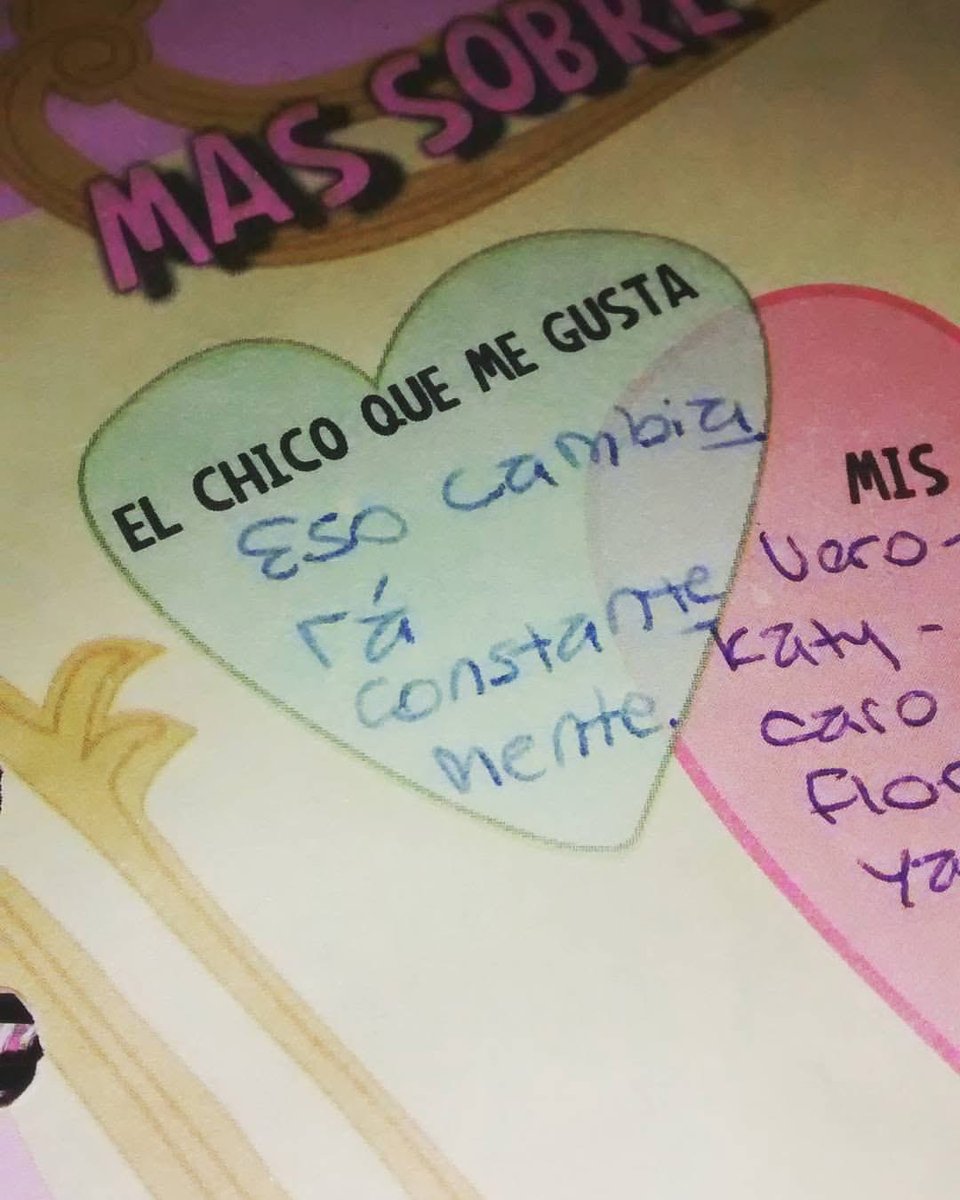 MAS SOBRE
EL CHICO QUE ME GUSTA
Eso cambia
rá
constante
mente.
MIS
Vero-
Katy -
caro